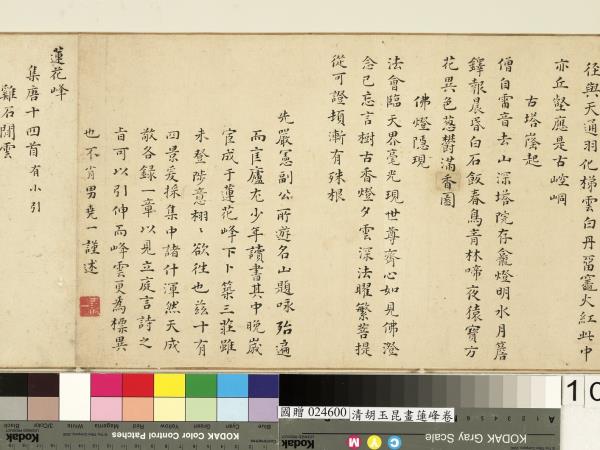 徑與天通羽化梯雲白丹留竈火紅此中
亦丘壑應是古崆峒
古塔窿起
僧自雷音去山深塔院存龕燈明水月簷
鐸報晨昏白石飯春鳥青林啼夜猿寶方
花異色葱鬱滿香園
佛燈隱現
法會臨天界毫光現世尊齊心如見佛澄
念已忘言樹古香燈夕雲深法曜繁菩提
從可證頓漸有殊根
先嚴憲副公所遊名山題咏殆遍
而匡廬尤少年讀書其中晚歲
宦成于蓮花峰下卜築三莊雖
未登陟意栩々欲往也茲十有
四景爰採集中諸什渾然天成
敬各録一章以見立庭言詩之
旨可以引伸而峰雲更為標異
也不肖男堯一謹述
蓮花峰
集唐十四首有小引
雞石闢雲
國贈 024600 清胡玉昆畫蓮峰卷
KODAK Color Control Patches
Blue Cyan Green Yellow Red Magenta White
Kodak
KODAK Gray Scale
C Y M
Kodak
A 1 2 3 4 5 6
10